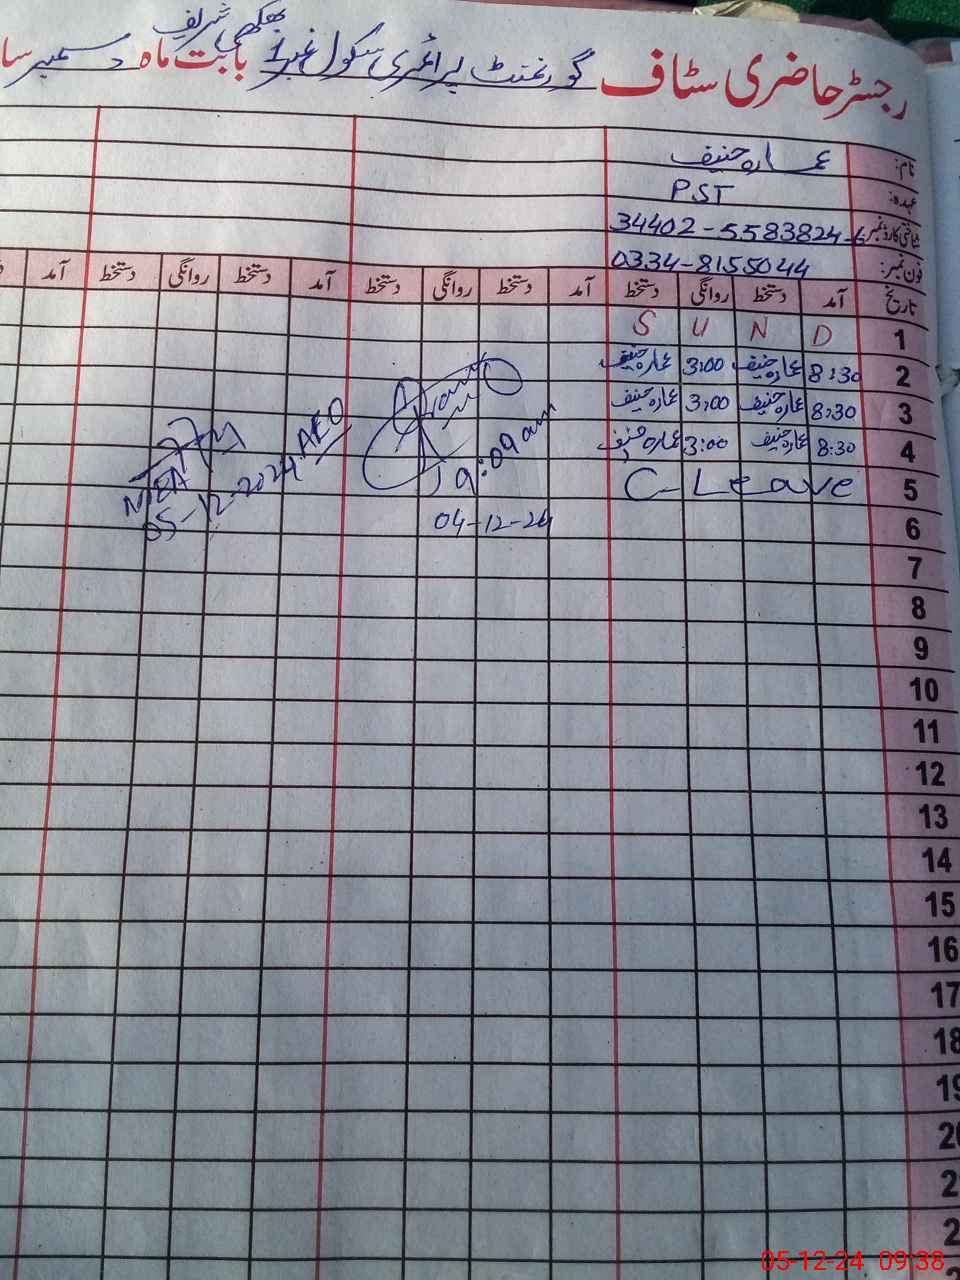 بھکھی شریف
رجسٹر حاضری سٹاف گورنمنٹ پرائمری سکول نمبر 1 بابت ماہ دسمبر سا
نام: عمارہ حنیف
عہدہ: PST
شناختی کارڈ نمبر 34402-5583824-6
فون نمبر: 0334-8155044
تاریخ آمد دستخط روانگی دستخط آمد دستخط روانگی دستخط آمد دستخط روانگی دستخط آمد
1 S U N D
2 8:30 عمارہ حنیف 3:00 عمارہ حنیف
3 8:30 عمارہ حنیف 3:00 عمارہ حنیف
4 8:30 عمارہ حنیف 3:00 عمارہ حنیف
5 C-Leave
9:09 am
04-12-24
MEA
05-12-2024 AEO
6
7
8
9
10
11
12
13
14
15
16
17
18
19
20
2
2
05-12-24 09:38